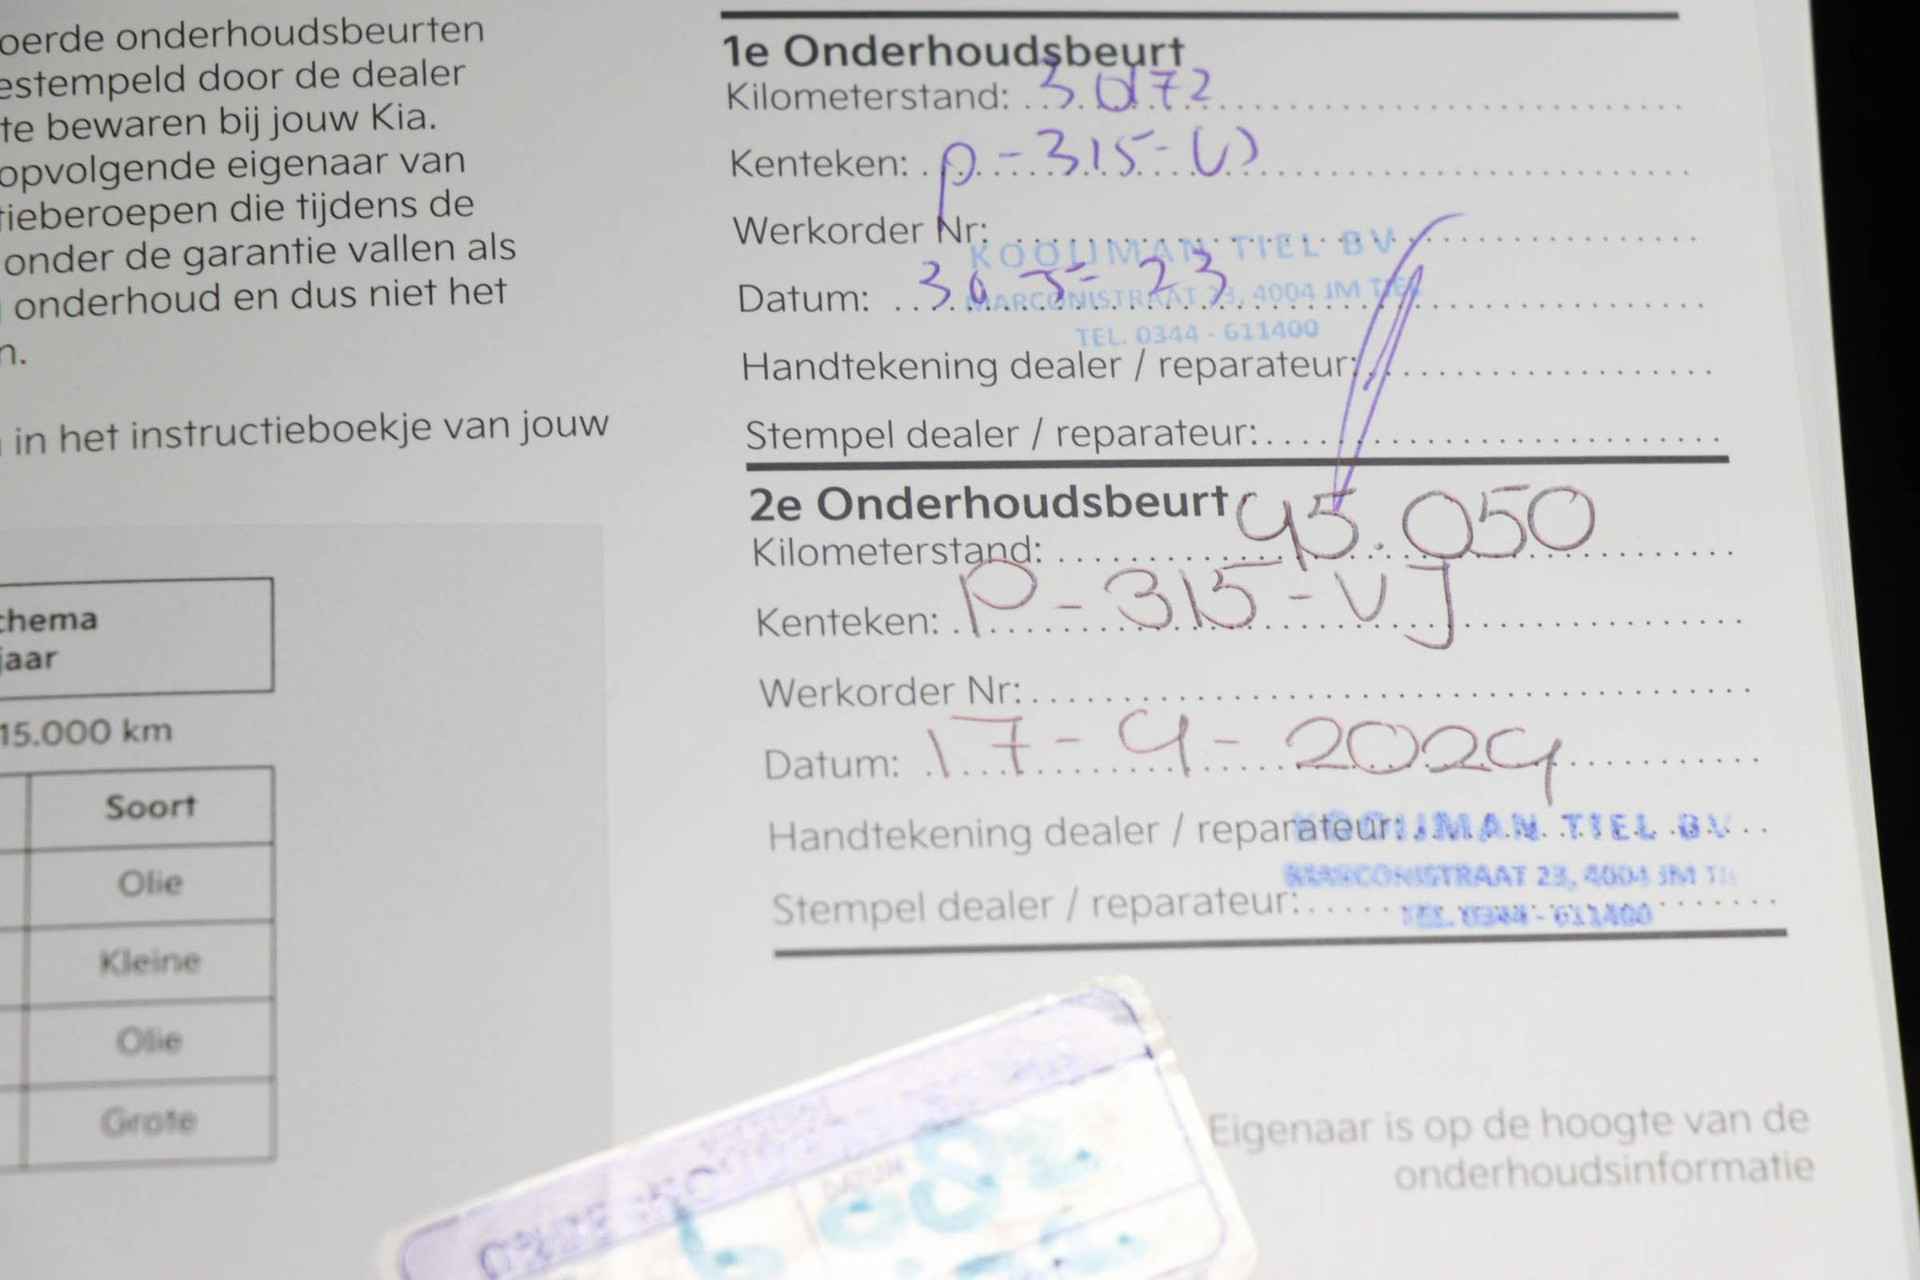 oerde onderhoudsbeurten
estempeld door de dealer
te bewaren bij jouw Kia.
opvolgende eigenaar van
tieberoepen die tijdens de
onder de garantie vallen als
onderhoud en dus niet het
n.
in het instructieboekje van jouw
chema
jaar
15.000 km
Soort
Olie
Kleine
Olie
Grote
1e Onderhoudsbeurt
Kilometerstand: 30172
Kenteken: P-315-VJ
Werkorder Nr:
KOOIJMAN TIEL BV
Datum: 30-5-23
MARCONISTRAAT 23, 4004 JM TIEL
TEL. 0344 - 611400
Handtekening dealer / reparateur:
Stempel dealer / reparateur:
2e Onderhoudsbeurt
Kilometerstand: 45.050
Kenteken: P-315-VJ
Werkorder Nr:
Datum: 17-4-2024
Handtekening dealer / reparateur: KOOIJMAN TIEL BV
MARCONISTRAAT 23, 4004 JM TI
Stempel dealer / reparateur: TEL. 0344 - 611400
Eigenaar is op de hoogte van de
onderhoudsinformatie